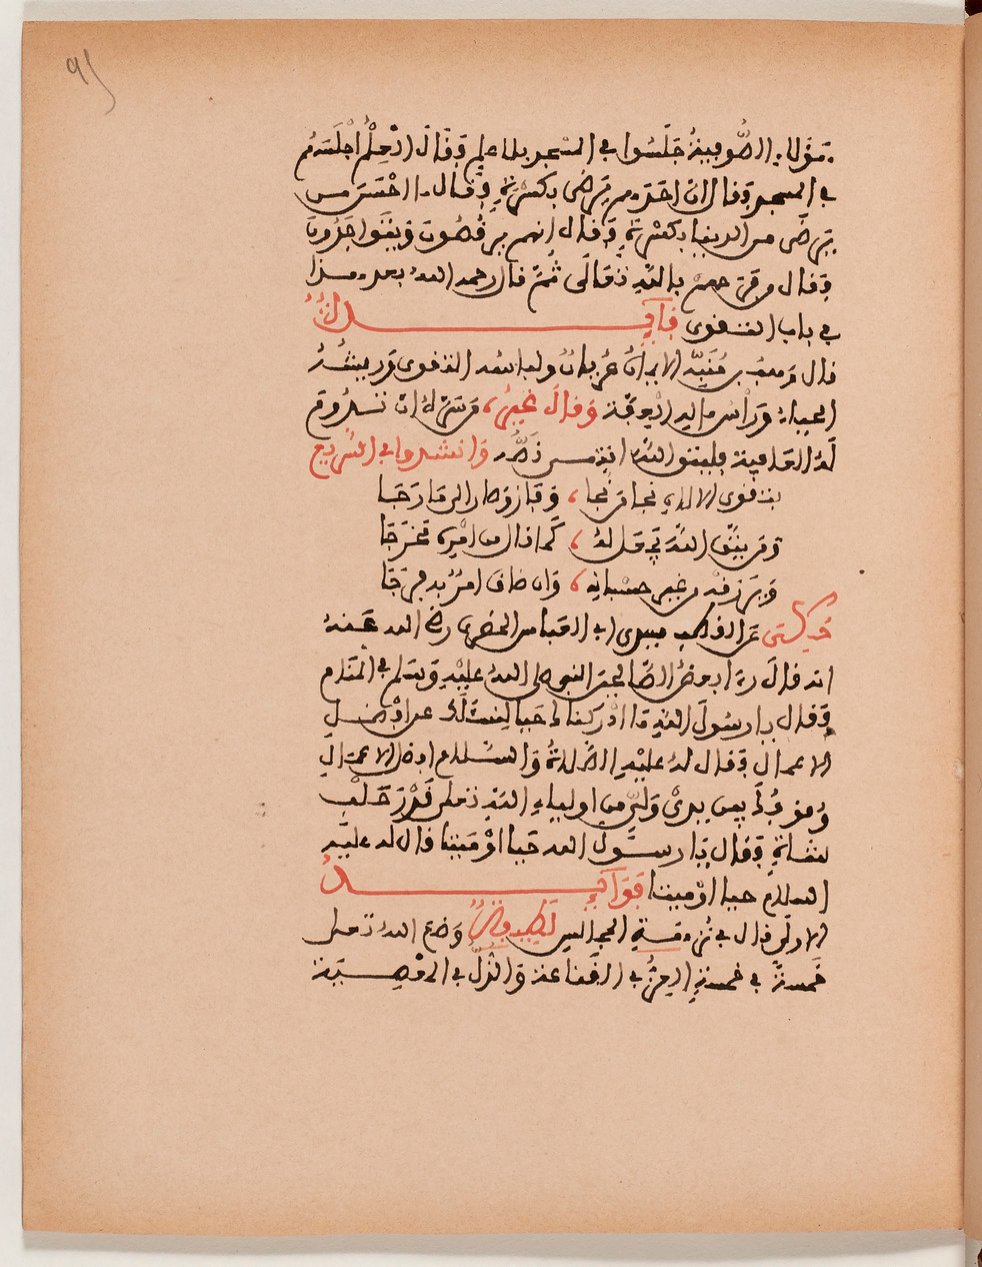 ٩١
هؤلاء الصوفية جلسوا في المسجد بلا علم فقال العلم اجلسهم
في المسجد فقال ان احدهم يرضى بكسرة فقال ما احسن من
يرضى من الدنيا بكسرة فقال انهم يرقصون ويتواجدون
فقال من بالله تعالى ثم قال رحمه الله بعد هذا
في باب التقوى فائدة
قال وهب بن منبه الايمان عريان ولباسه التقوى وريشه
الحياء وراس ماله العفة وقال غيره من سره ان تدوم
له العافية فليتق الله انتهى وانشدوا في السريع
بتقوى الاله نجا من نجا وفاز وصار الى ما رجا
ومن يتق الله يجعل له كما قال من امره مخرجا
ويرزقه من غير حسبانه وان ضاق امر به فرجا
حكى عن القطب سيدي ابي العباس الحضرمي رضي الله عنه
انه قال راى بعض الصالحين النبي صلى الله عليه وسلم في المنام
فقال يا رسول الله ما ادركناك حيا لنسئلك عن افضل
الاعمال فقال له عليه الصلاة والسلام افضل الاعمال
وقوفك بين يدي ولي من اولياء الله تعلى قدر حلب
شاة فقال يا رسول الله حيا او ميتا قال له عليه
السلام حيا او ميتا فوائد
الاولى قال في نزهة المجالس لطيفة وضع الله تعلى
خمسة في خمسة العز في القناعة والذل في المعصية